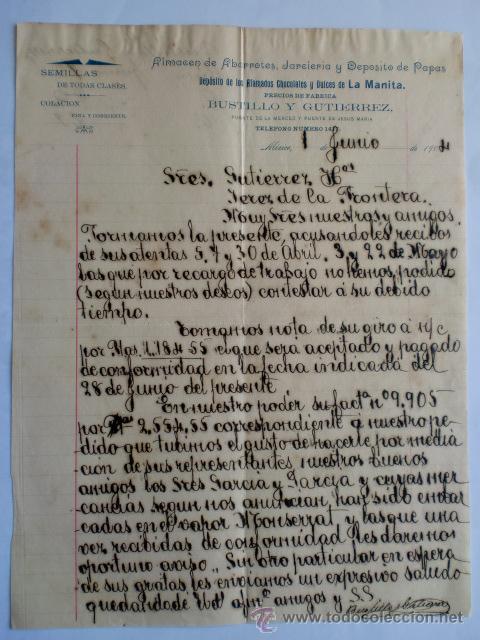 Almacen de Abarrotes, Jarcieria y Deposito de Papas
SEMILLAS
DE TODAS CLASES.
Depósito de los Afamados Chocolates y Dulces de La Manita.
PRECIOS DE FABRICA
COLACION
BUSTILLO Y GUTIERREZ,
FINA Y CORRIENTE.
PUENTE DE LA MERCED Y PUENTE DE JESUS MARIA
TELEFONO NUMERO 14
México, 1 de Junio de 19
Sres. Gutierrez Hos
Jerez de la Frontera.
Muy Sres nuestros y amigos.
Tormamos la presente, acusandoles recibos
de sus atentas 5, 7 y 30 de Abril, 3, y 22 de Mayo
las que por recargo de trabajo no hemos podido
(segun nuestros deseos) contestar á su debido
tiempo.
Tomamos nota de su giro á n/c
por Mas. 55 el que será aceptado y pagado
de conformidad en la fecha indicada del
28 de Junio del presente
En nuestro poder su facta no 9.905
por 55 correspondiente á nuestro pe-
dido que tuvimos el gusto de hacerle por media
cion de sus representantes, nuestros buenos
amigos los Sres Garcia y Garcia y cuyas mer
cancias segun nos anuncian, han sido embar
cadas en el vapor Monserrat, y las que una
vez recibidas de conformidad les daremos
oportuno aviso,, Sin otro particular en espera
de sus gratas les enviamos un expresivo saludo
quedando de Uds afmos amigos y S.S
Bustillo y Gutierrez
todocoleccion